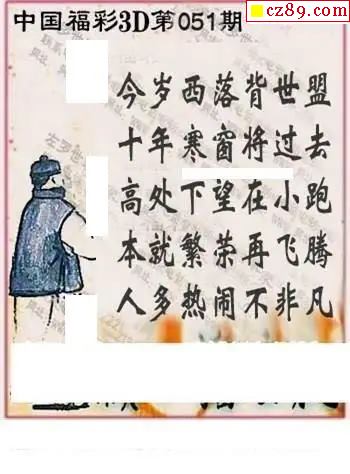 中国福彩3D第051期
cz89.com
今岁西落背世盟
十年寒窗将过去
高处下望在小跑
本就繁荣再飞腾
人多热闹不非凡